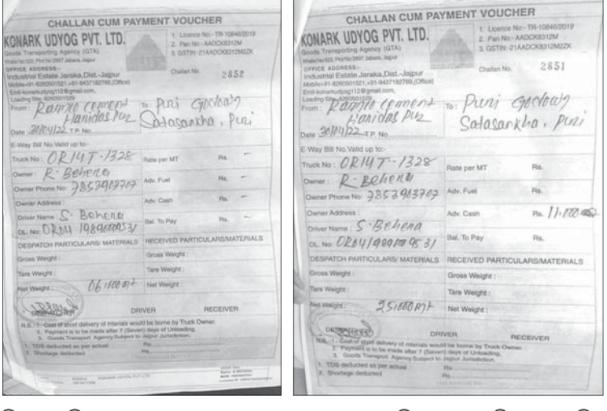 CHALLAN CUM PAYMENT VOUCHER
KONARK UDYOG PVT. LTD.
Goods Transporting Agency (GTA)
OFFICE ADDRESS:-
Industrial Estate Jaraka, Dist.-Jajpur
1. Licence No:- TR-10846/2019
2. Pan No:- AADCK8312M
3. GSTIN :21AADCK8312M2ZX
Challan No. 2852
From : Ramco cement
Haridaspur
To : Puri Godown
Satasankha, Puri
Date 30/04/22 T.P. No.
E-Way Bill No. Valid up to:-
Truck No : OR14T-1328
Rate per MT Rs. -
Owner : R- Behera
Adv. Fuel Rs. -
Owner Phone No: 7853913707
Owner Address :
Adv. Cash Rs. -
Driver Name : S- Behera
Bal. To Pay Rs. -
DL. No:
DESPATCH PARTICULARS/ MATERIALS RECEIVED PARTICULARS/MATERIALS
Gross Weight : Gross Weight :
Tare Weight : Tare Weight :
Net Weight : Net Weight :
DRIVER RECEIVER
N.B.:- 1. Cost of short delivery of materials would be borne by Truck Owner.
2. Payment is to be made after 7 (Seven) days of Unloading.
3. Goods Transport Agency Subject to Jajpur Jurisdiction.
1. TDS deducted as per actual Rs
2. Shortage deducted Rs
CHALLAN CUM PAYMENT VOUCHER
KONARK UDYOG PVT. LTD.
Goods Transporting Agency (GTA)
OFFICE ADDRESS:-
Industrial Estate Jaraka, Dist.-Jajpur
1. Licence No:- TR-10846/2019
2. Pan No:- AADCK8312M
3. GSTIN :21AADCK8312M2ZX
Challan No. 2851
From : Ramco cement
Haridaspur
To : Puri Godown
Satasankha, Puri
Date 30/04/22 T.P. No.
E-Way Bill No. Valid up to:-
Truck No : OR14T-1328
Rate per MT Rs.
Owner : R- Behera
Adv. Fuel Rs.
Owner Phone No: 7853913707
Owner Address :
Adv. Cash Rs. 11,000
Driver Name : S- Behera
Bal. To Pay Rs.
DL. No:
DESPATCH PARTICULARS/ MATERIALS RECEIVED PARTICULARS/MATERIALS
Gross Weight : Gross Weight :
Tare Weight : Tare Weight :
Net Weight : Net Weight :
DRIVER RECEIVER
N.B.:- 1. Cost of short delivery of materials would be borne by Truck Owner.
2. Payment is to be made after 7 (Seven) days of Unloading.
3. Goods Transport Agency Subject to Jajpur Jurisdiction.
1. TDS deducted as per actual Rs
2. Shortage deducted Rs